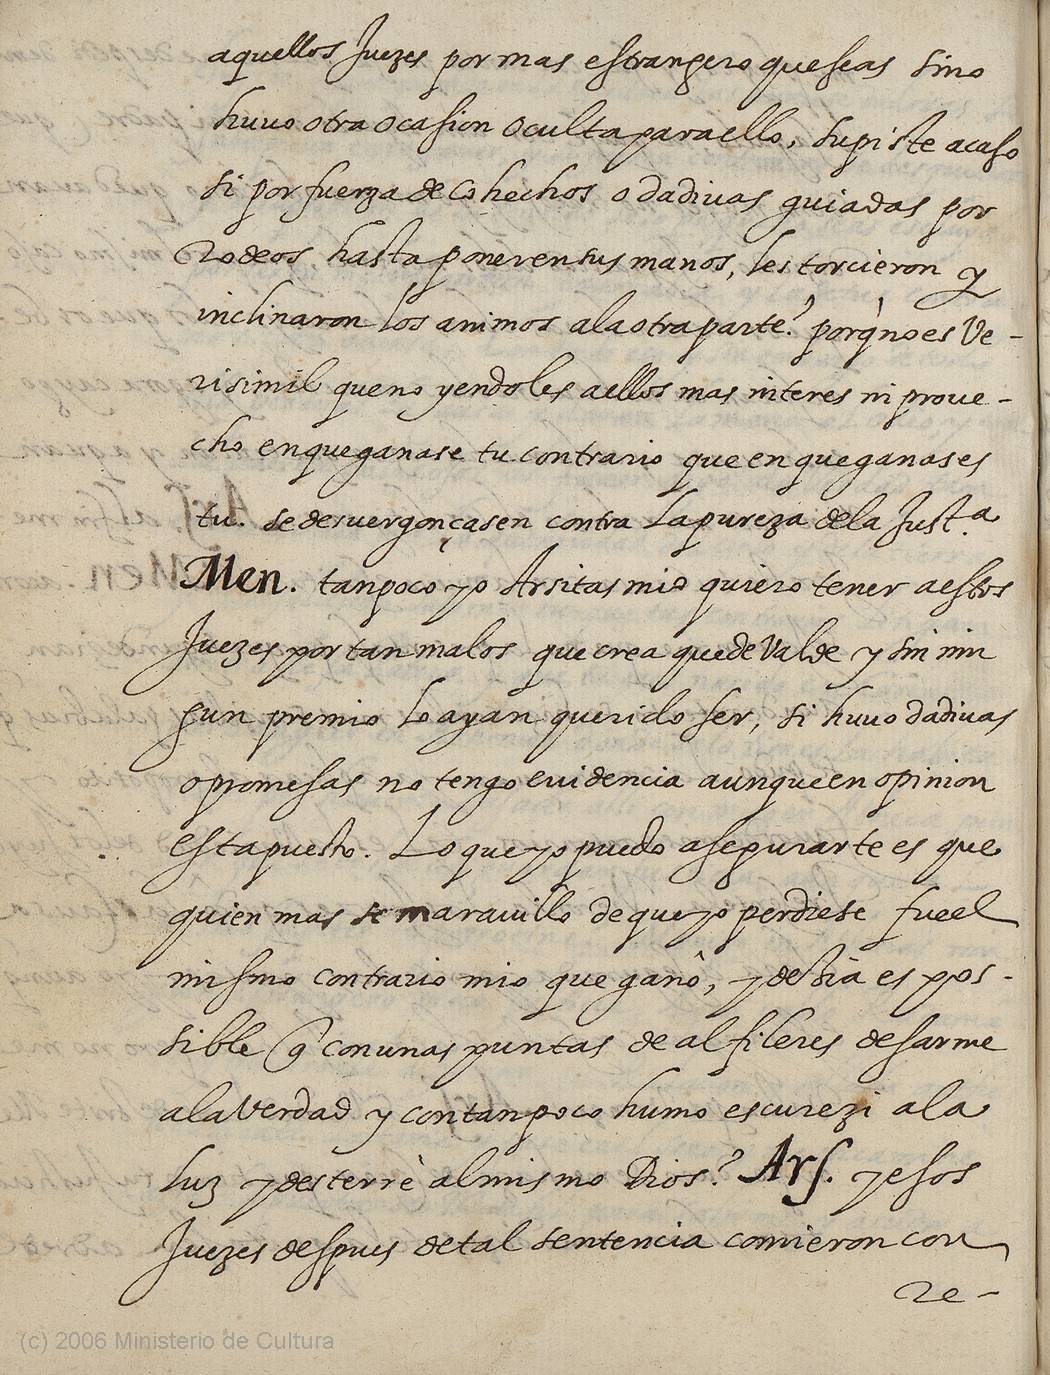 aquellos Juezes por mas estrangero que seas sino
huuo otra ocasion oculta para ello, supiste acaso
si por fuerza de cohechos o dadiuas guiadas por
Rodeos, hasta poner en sus manos, les torcieron y
inclinaron los animos a la otra parte? porq̀ no es Ve-
risimil que no yendoles a ellos mas interes ni proue-
cho en que ganase tu contrario que en que ganases
tu. se desuergonçasen contra La pureza de la Just.a
Men. tanpoco yo Arsitas mio quiero tener a estos
Juezes por tan malos que crea que de Valde y sin nin
gun premio lo ayan querido ser, si huuo dadiuas
o promesas no tengo euidencia aunque en opinion
esta puesto. Lo que yo puedo asegurarte es que
quien mas se marauillo de que yo perdiese fue el
mismo contrario mio que ganò, y desia es pos-
sible q̃ con unas puntas de alfileres desarme
a la Verdad y con tan poco humo escurezi a la
luz y desterrè al mismo Dios? Ars. y esos
Juezes despues de tal sentencia comieron con
Re-
(c) 2006 Ministerio de Cultura